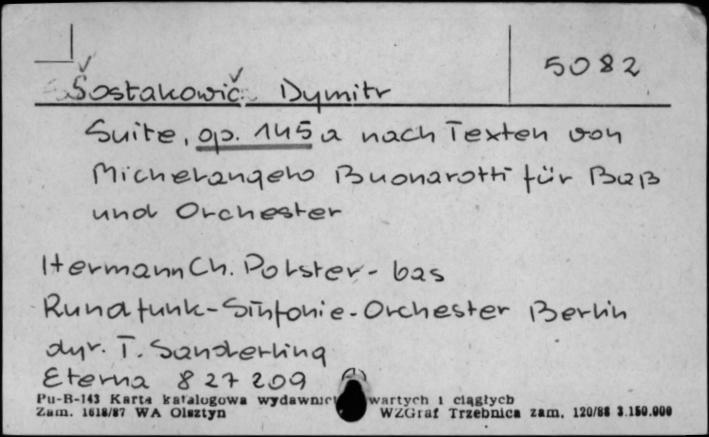 5082
Šostakowič Dymitr
Suite, op. 145a nach Texten von
Michelangelo Buonarotti für Baß
und Orchester
Hermann Ch. Polster - bas
Rundfunk-Sinfonie-Orchester Berlin
dyr. T. Sanderling
Eterna 827209
Pu-B-143 Karta katalogowa wydawnict wartych i ciągłych
Zam. 1618/87 WA Olsztyn WZGraf Trzebnica zam. 120/88 3.150.000